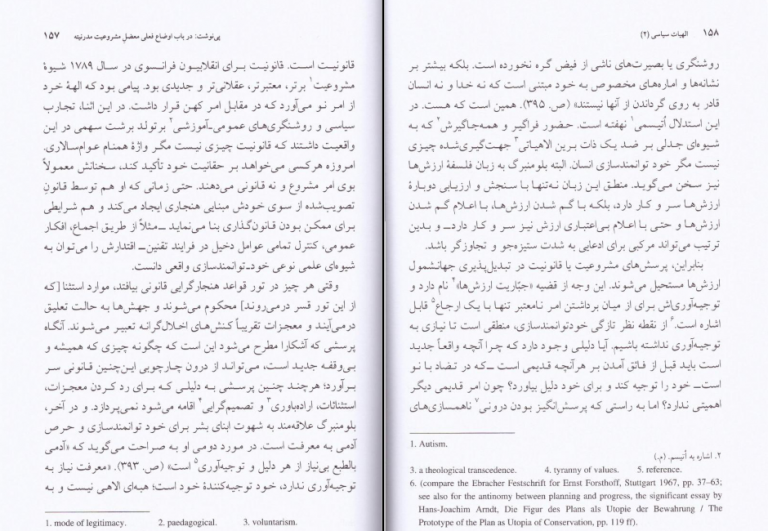 پی‌نوشت: در باب اوضاع فعلی معضل مشروعیت مدرنیته ۱۵۷
قانونیت است. قانونیت برای انقلابیون فرانسوی در سال ۱۷۸۹ شیوهٔ
مشروعیت۱ برتر، معتبرتر، عقلانی‌تر و جدیدی بود. پیامی بود که الههٔ خرد
از امر نو می‌آورد که در مقابل امر کهن قرار داشت. در این اثنا، تجارب
سیاسی و روشنگری‌های عمومی-آموزشی۲ برتولد برشت سهمی در این
واقعیت داشتند که قانونیت چیزی نیست مگر واژهٔ همنام عوام‌سالاری.
امروزه هرکسی می‌خواهد بر حقانیت خود تأکید کند، سخنانش معمولاً
بوی امر مشروع و نه قانونی می‌دهند. حتی زمانی که او هم توسط قانون
تصویب‌شده از سوی خودش مبنایی هنجاری ایجاد می‌کند و هم شرایطی
برای ممکن بودن قانون‌گذاری بنا می‌نماید ــ مثلاً از طریق اجماع، افکار
عمومی، کنترل تمامی عوامل دخیل در فرایند تقنین ــ اقتدارش را می‌توان به
شیوه‌ای علمی نوعی خود-توانمندسازی واقعی دانست.
وقتی هر چیز در تور قواعد هنجارگرایی قانونی بیافتد، موارد استثنا [که
از این تور قسر درمی‌روند] محکوم می‌شوند و جهش‌ها به حالت تعلیق
درمی‌آیند و معجزات تقریباً کنش‌های اخلال‌گرانه تعبیر می‌شوند. آنگاه
پرسشی که آشکارا مطرح می‌شود این است که چگونه چیزی که همیشه و
بی‌وقفه جدید است، می‌تواند از درون چارچوبی این‌چنین قانونی سر
برآورد؛ هرچند چنین پرسشی به دلیلی که برای رد کردن معجزات،
استثنائات، اراده‌باوری۳ و تصمیم‌گرایی۴ اقامه می‌شود نمی‌پردازد. و در آخر،
بلومنبرگ علاقه‌مند به شهوت ابنای بشر برای خود توانمندسازی و حرص
آدمی به معرفت است. در مورد دومی او به صراحت می‌گوید که «آدمی
بالطبع بی‌نیاز از هر دلیل و توجیه‌آوری۵ است» (ص. ۳۹۳). «معرفت نیاز به
توجیه‌آوری ندارد، خود توجیه‌کنندهٔ خود است؛ هبه‌ای الاهی نیست و به
1. mode of legitimacy. 2. paedagogical. 3. voluntarism.
۱۵۸ الهیات سیاسی (۲)
روشنگری یا بصیرت‌های ناشی از فیض گره نخورده است. بلکه بیشتر بر
نشانه‌ها و اماره‌های مخصوص به خود مبتنی است که نه خدا و نه انسان
قادر به روی گرداندن از آنها نیستند» (ص. ۳۹۵). همین است که هست. در
این استدلال اُتیسمی۱ نهفته است. حضور فراگیر و همه‌جاگیرش۲ که به
شیوه‌ای جدلی بر ضد یک ذات برین الاهیاتی۳ جهت‌گیری‌شده چیزی
نیست مگر خود توانمندسازی انسان. البته بلومنبرگ به زبان فلسفهٔ ارزش‌ها
نیز سخن می‌گوید. منطق این زبان نه‌تنها با سنجش و ارزیابی دوبارهٔ
ارزش‌ها سر و کار دارد، بلکه با گم شدن ارزش‌ها، با اعلام گم شدن
ارزش‌ها و حتی با اعلام بی‌اعتباری ارزش نیز سر و کار دارد ــ و بدین
ترتیب می‌تواند مرکبی برای ادعایی به شدت ستیزه‌جو و تجاوزگر باشد.
بنابراین، پرسش‌های مشروعیت یا قانونیت در تبدیل‌پذیری جهانشمول
ارزش‌ها مستحیل می‌شوند. این وجه از قضیه «جبّاریت ارزش‌ها»۴ نام دارد و
توجیه‌آوری‌اش برای از میان برداشتن امر نامعتبر تنها با یک ارجاع۵ قابل
اشاره است.۶ از نقطه نظر تازگی خودتوانمندسازی، منطقی است تا نیازی به
توجیه‌آوری نداشته باشیم. آیا دلیلی وجود دارد که چرا آنچه واقعاً جدید
است باید قبل از فائق آمدن بر هرآنچه قدیمی است ــ که در تضاد با نو
است ــ خود را توجیه کند و برای خود دلیل بیاورد؟ چون امر قدیمی دیگر
اهمیتی ندارد؟ اما به راستی که پرسش‌انگیز بودن درونی۷ ناهمسازی‌های
1. Autism.
۲. اشاره به اُتیسم. (م.)
3. a theological transcedence. 4. tyranny of values. 5. reference.
6. (compare the Ebracher Festschrift for Ernst Forsthoff, Stuttgart 1967, pp. 37–63;
see also for the antinomy between planning and progress, the significant essay by
Hans-Joachim Arndt, Die Figur des Plans als Utopie der Bewahrung / The
Prototype of the Plan as Utopia of Conservation, pp. 119 ff).